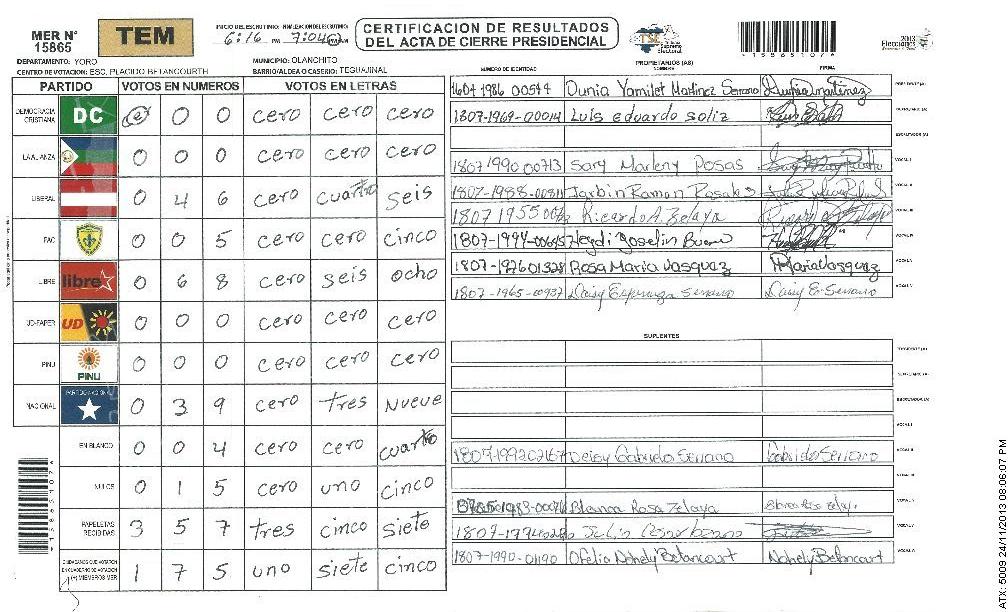 MER N°
15865
TEM
INICIO DEL ESCRUTINIO: FINALIZACION DEL ESCRUTINIO:
6:16 PM 7:04
CERTIFICACION DE RESULTADOS
DEL ACTA DE CIERRE PRESIDENCIAL
TSE
Tribunal Supremo Electoral
*15865107*
2013
Elecciones
DEPARTAMENTO: YORO
MUNICIPIO: OLANCHITO
CENTRO DE VOTACION: ESC. PLACIDO BETANCOURTH
BARRIO/ALDEA O CASERIO: TEGUAJINAL
PARTIDO VOTOS EN NUMEROS VOTOS EN LETRAS
DEMOCRACIA CRISTIANA DC 0 0 0 cero cero cero
LA ALIANZA 0 0 0 cero cero cero
LIBERAL 0 4 6 cero cuatro seis
PAC 0 0 5 cero cero cinco
LIBRE libre 0 6 8 cero seis ocho
UD-FAPER UD 0 0 0 cero cero cero
PINU PINU 0 0 0 cero cero cero
NACIONAL PARTIDO NACIONAL 0 3 9 cero tres nueve
EN BLANCO 0 0 4 cero cero cuatro
NULOS 0 1 5 cero uno cinco
PAPELETAS RECIBIDAS 3 5 7 tres cinco siete
CIUDADANOS QUE VOTARON EN CUADERNO DE VOTACION (+) MIEMBROS MER 1 7 5 uno siete cinco
PROPIETARIOS (AS)
NUMERO DE IDENTIDAD NOMBRE FIRMA
1604 1986 00544 Dunia Yamilet Martinez Serrano PRESIDENTE (A)
1807-1969-00014 Luis eduardo soliz SECRETARIO (A)
ESCRUTADOR (A)
1807 1990 00713 Sary Marleny Posas VOCAL I
1807-1988-00811 Jarbin Ramon Rosales VOCAL II
1807 1955 Ricardo A. Zelaya VOCAL III
1807-1994-00695 Heydi Joselin Bueno VOCAL IV
1807-197601328 Rosa Maria Vasquez Maria Vasquez VOCAL V
1807-1965-00937 Daisy Esperanza Serrano Daisy E. Serrano VOCAL VI
SUPLENTES
PRESIDENTE (A)
SECRETARIO (A)
ESCRUTADOR (A)
VOCAL I
1807-199202167 Deisy Gabriela Serrano Gabriela Serrano VOCAL II
VOCAL III
Blanca Rosa Zelaya VOCAL IV
Julio Cesar VOCAL V
1807-1990-01190 Ofelia Nohely Betancourt Nohely Betancourt VOCAL VI
*15865107*
ATX: 5009 24/11/2013 08:06:07 PM